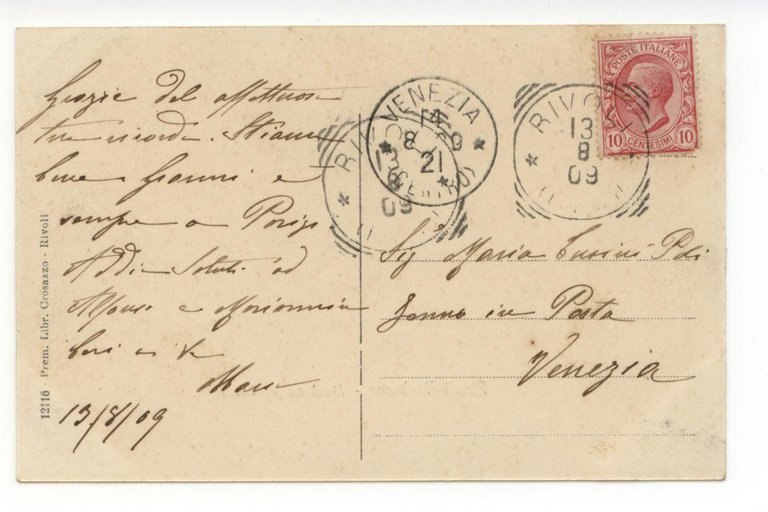 Grazie del affettuoso
tuo ricordo. Stiamo
bene Gianni e
sempre a Parigi
Addio Saluti ad
e
baci a te
13/8/09
12116 - Prem. Libr. Crosazzo - Rivoli
VENEZIA
14 8 - 09
21
(CENTRO)
RIVOLI
13
8
09
RIVOLI
13
8
09
POSTE ITALIANE
10 CENTESIMI 10
Sig Maria
Fermo in Posta
Venezia